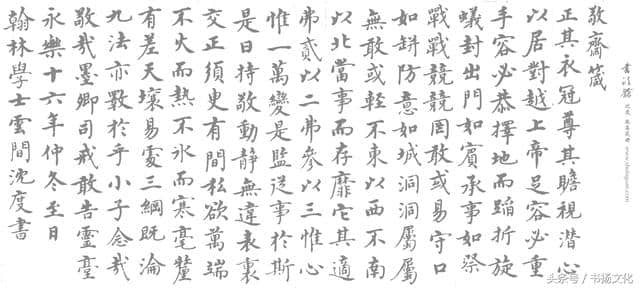 敬齋箴
正其衣冠尊其瞻視潛心
以居對越上帝足容必重
手容必恭擇地而蹈折旋
蟻封出門如賓承事如祭
戰戰兢兢罔敢或易守口
如缾防意如城洞洞屬屬
無敢或輕不東以西不南
以北當事而存靡它其適
弗貳以二弗參以三惟心
惟一萬變是監從事於斯
是曰持敬動靜無違表裏
交正須臾有間私欲萬端
不火而熱不冰而寒毫釐
有差天壤易處三綱既淪
九法亦斁於乎小子念哉
敬哉墨卿司戒敢告靈臺
永樂十六年仲冬至日
翰林學士雲間沈度書
头条号 / 书杨文化